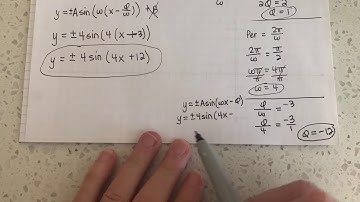 y = ±A sin(ω(x - φ/ω)) + B
y = ± 4 sin(4(x + 3))
y = ± 4 sin(4x + 12)
2Q = 2
Q = 1
Per = 2π/ω
2π/ω = π/2
ωπ/π = 4π/π
ω = 4
y = ±A sin(ωx - φ)
y = ±4 sin(4x -
φ/ω = -3
φ/4 = -3/1
φ = -12